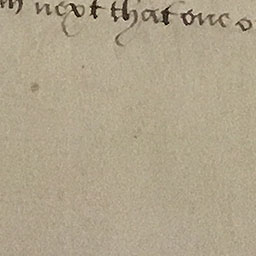 next that one o